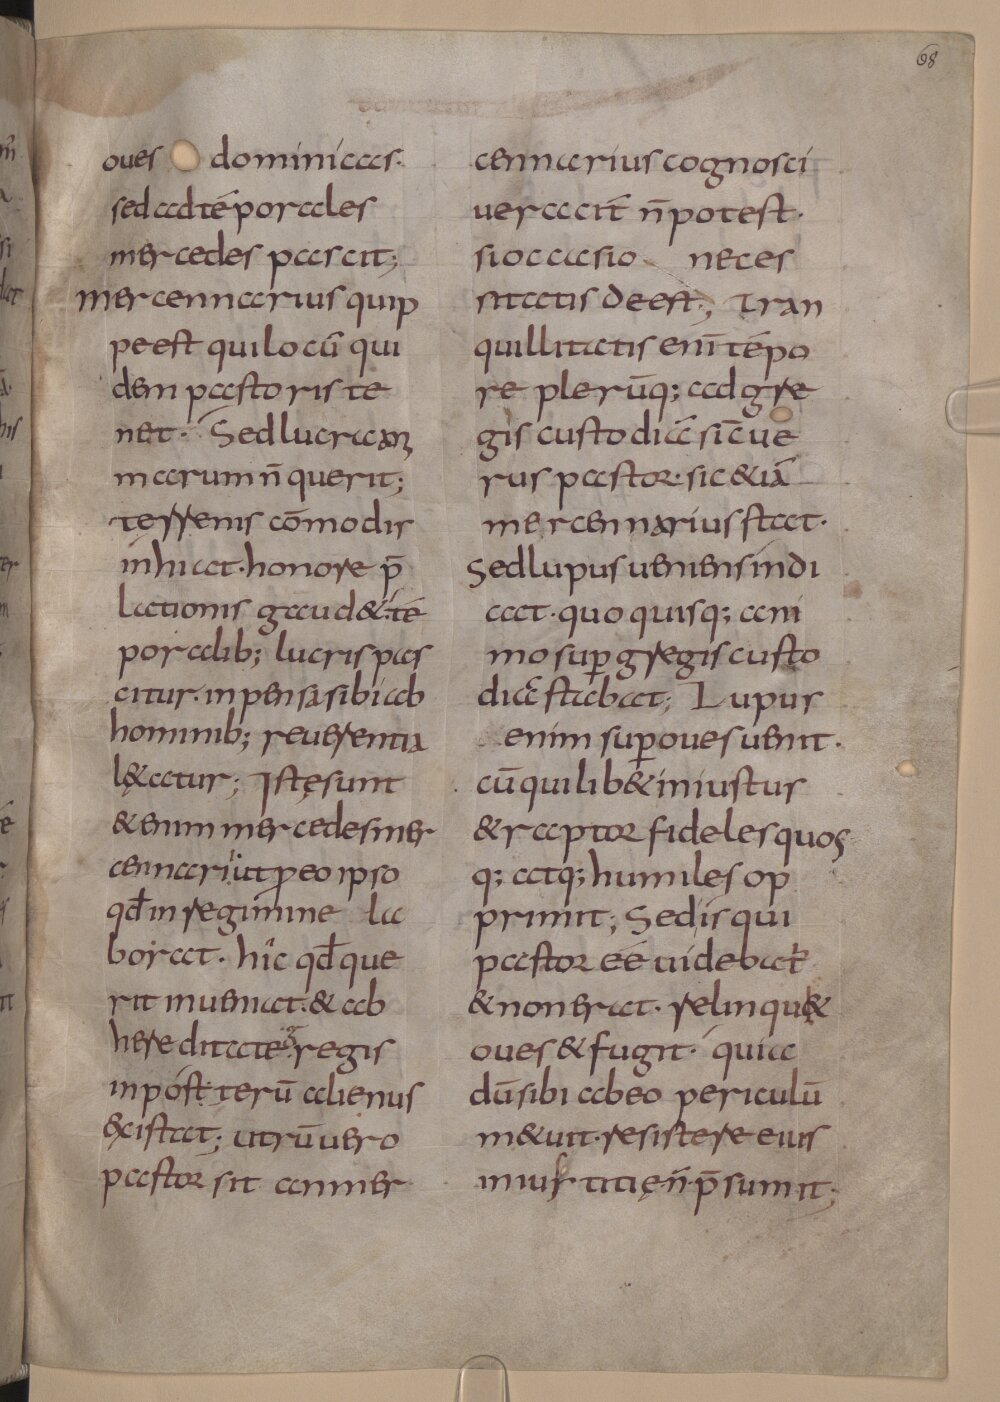 68
oues dominicas·
sed ad tẽporales
mercedes pascit;
mercennarius quip
pe est qui locū qui
dem pastoris te
net· Sed lucra aꝝ
marum n̄ querit;
terrenis cōmodis
inhiat· honore p̄
lationis gaud&· tē
poralib; lucris pas
citur· inpensa sibi ab
hominib; reuerentia
lęatur; Istę sunt
&enim mercedes mer
cennarii ut p eo ipso
qđ in regimine la
borat· hic qđ que
rit inueniat· & ab
hereditate gregis
inposterū alienus
existat; utrū uero
pastor sit an mer
cennarius cognosci
ueraciī n̄ potest·
si occasio neces
sitatis deest; Tran
quillitatis enī tēpo
re plerūq; ad gre
gis custodiā sic ue
rus pastor· sic &iā
mercennarius stat·
Sed lupus ueniens indi
cat· quo quisq; ani
mo sup gregis custo
diā stabat; Lupus
enim sup oues uenit·
cū quilib& iniustus
& raptor fideles quos
q; atq; humiles op
primit; Sed is qui
pastor eē uidebat̄
& non erat· relinqu&
oues & fugit· quia
dū sibi ab eo periculū
m&uit· resistere eius
iniustitię n̄ p̄sumit;